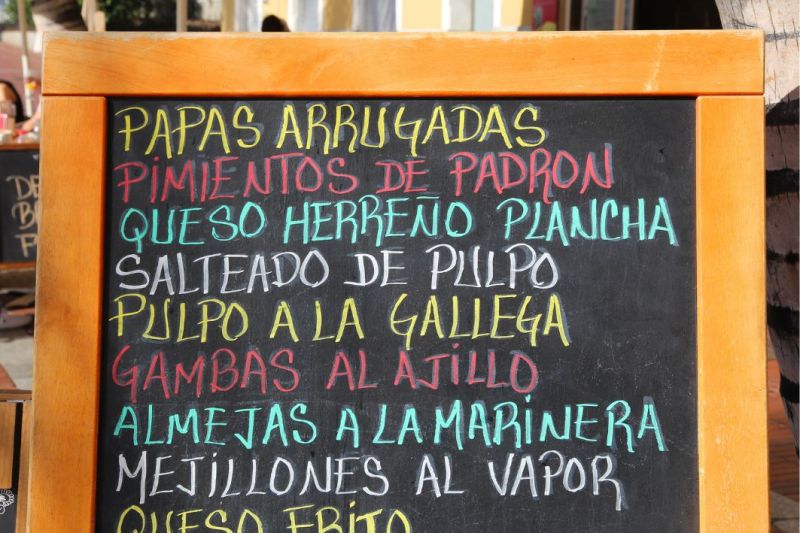 PAPAS ARRUGADAS
PIMIENTOS DE PADRON
QUESO HERREÑO PLANCHA
SALTEADO DE PULPO
PULPO A LA GALLEGA
GAMBAS AL AJILLO
ALMEJAS A LA MARINERA
MEJILLONES AL VAPOR
QUESO FRITO